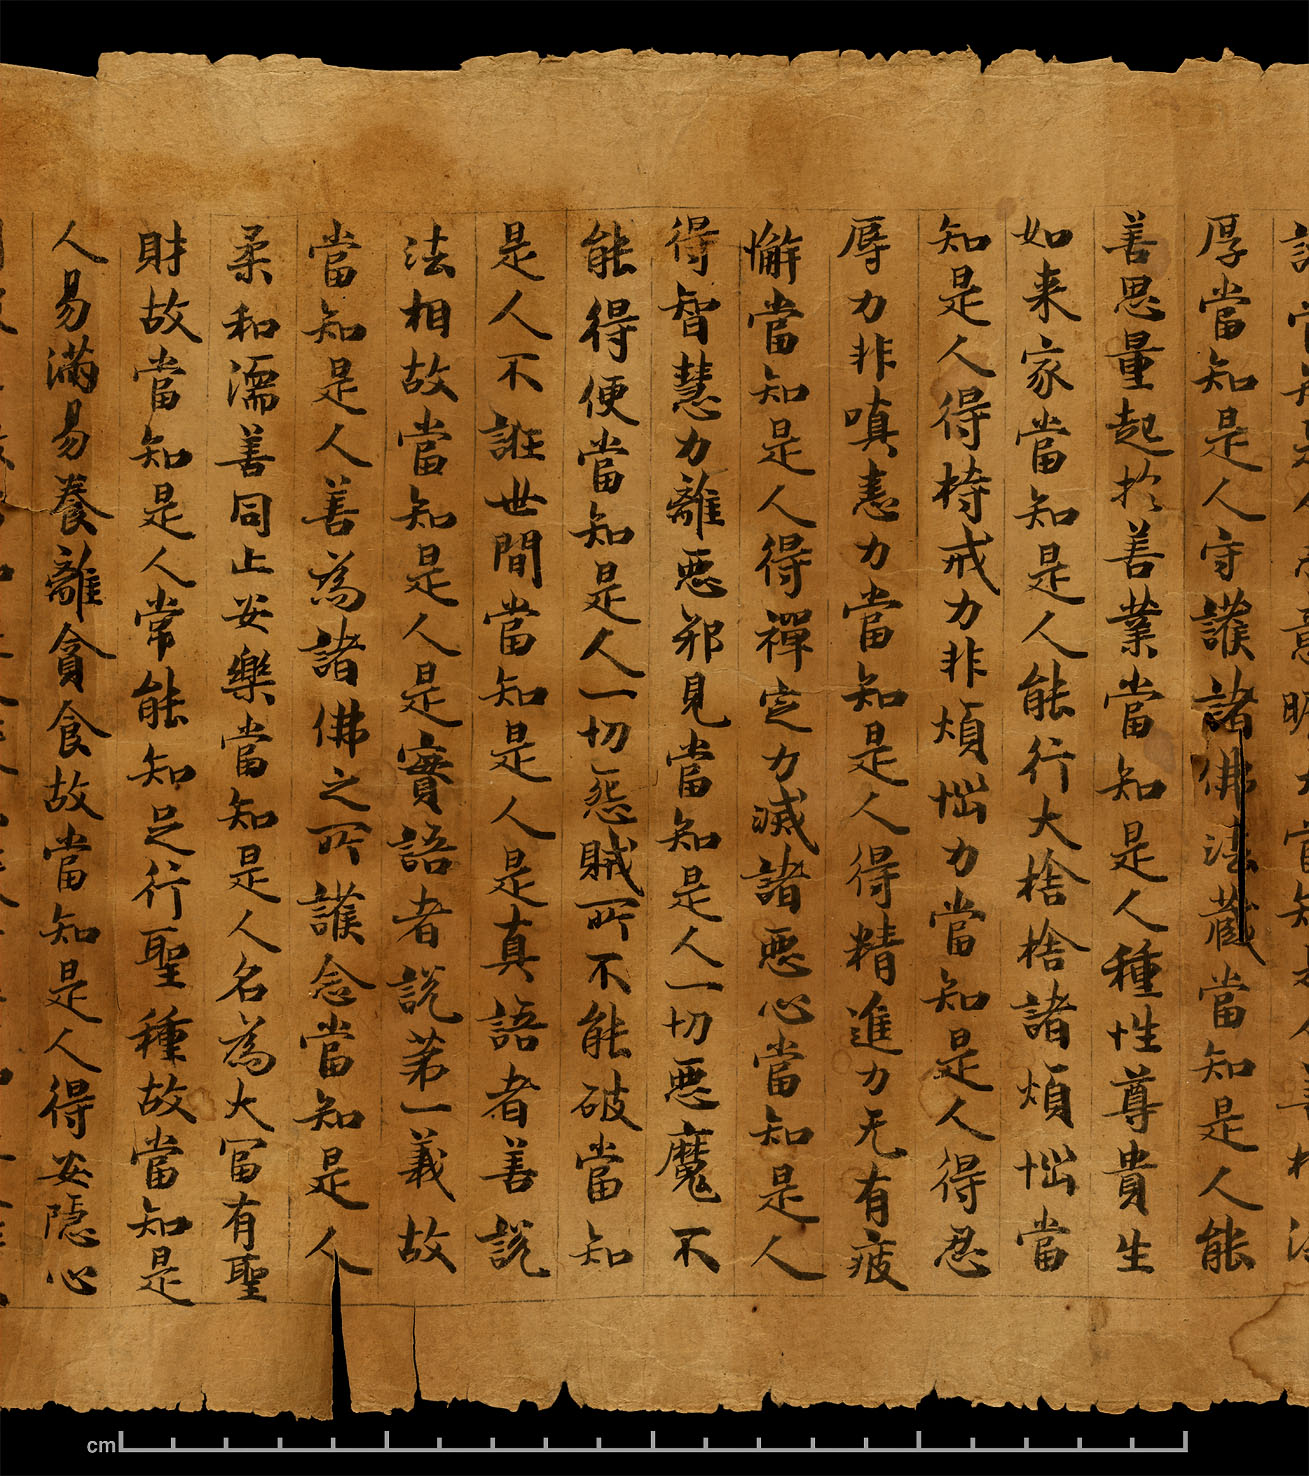 厚當知是人守護諸佛法藏當知是人能
善思量起於善業當知是人種性尊貴生
如来家當知是人能行大捨捨諸煩惱當
知是人得持戒力非煩惱力當知是人得忍
辱力非嗔恚力當知是人得精進力无有疲
懈當知是人得禪定力滅諸惡心當知是人
得智慧力離惡邪見當知是人一切惡魔不
能得便當知是人一切怨賊所不能破當知
是人不誑世間當知是人是真語者善說
法相故當知是人是實語者說第一義故
當知是人善為諸佛之所護念當知是人
柔和濡善同止安樂當知是人名為大冨有聖
財故當知是人常能知足行聖種故當知是
人易滿易養離貪食故當知是人得安隱心